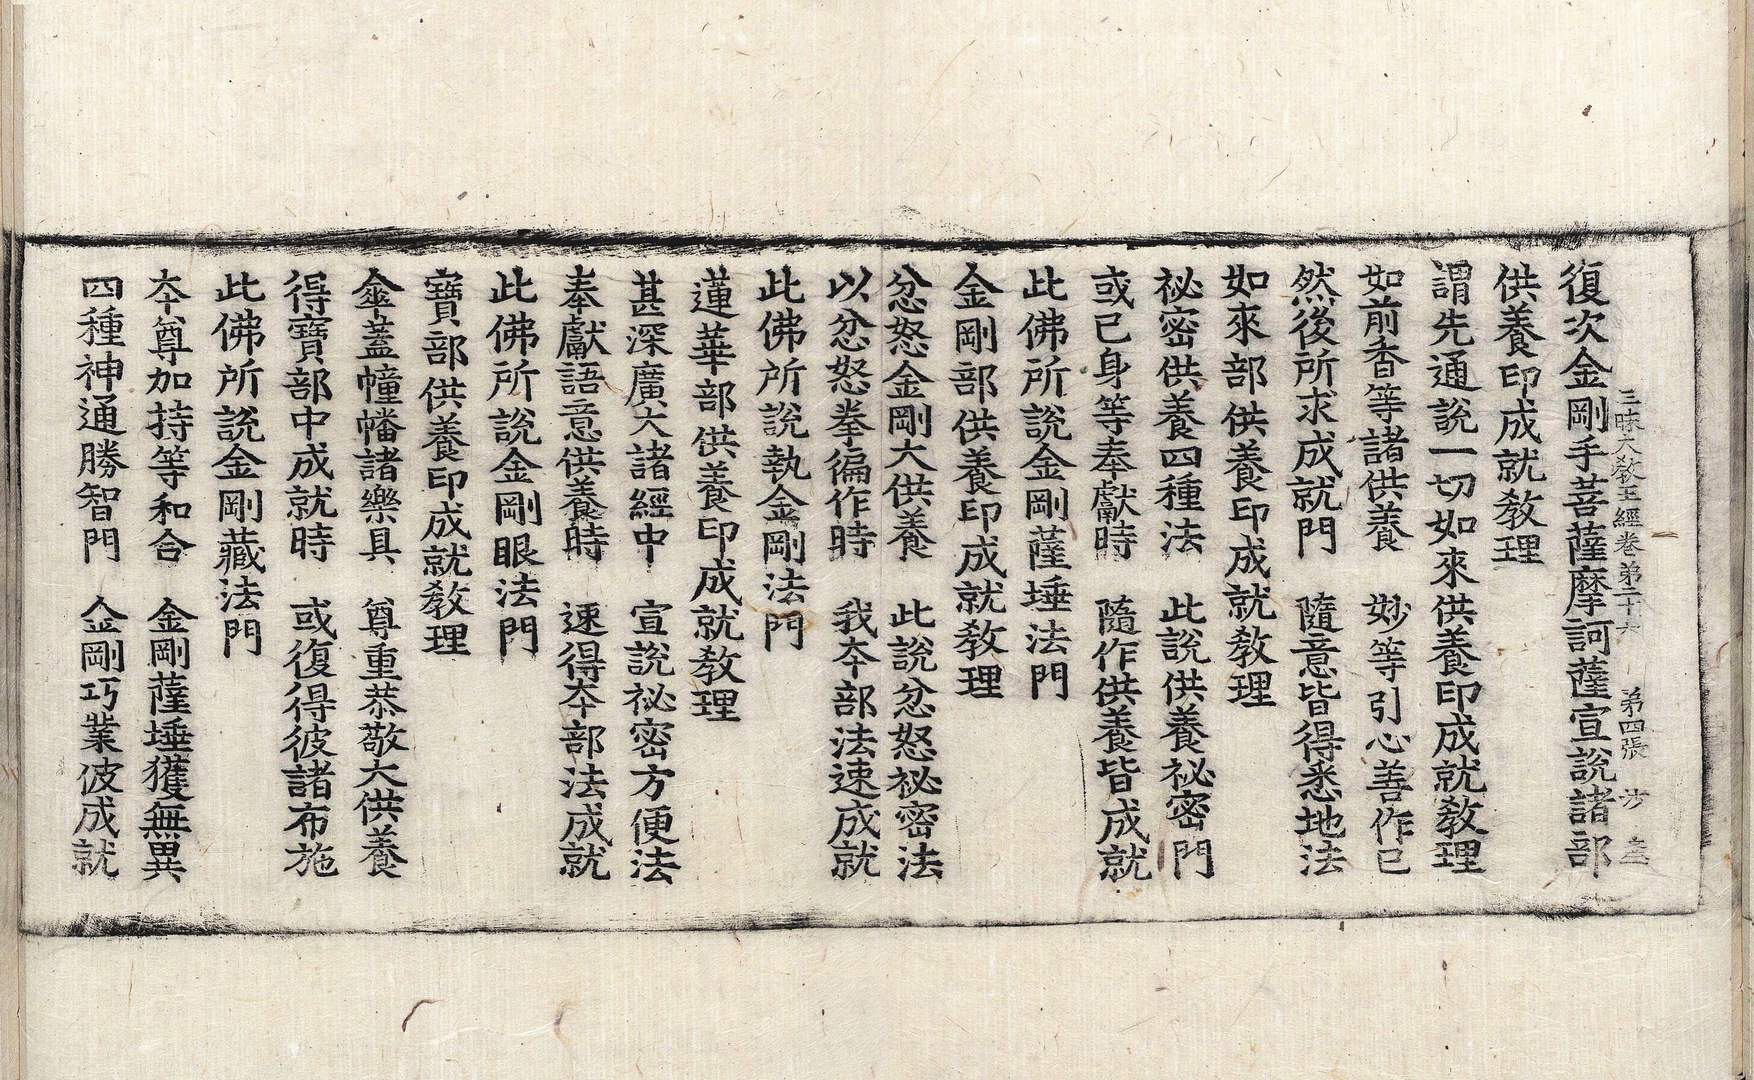 三昧大教王經卷第二十六　第四張　沙
復次金剛手菩薩摩訶薩宣說諸部
供養印成就教理
謂先通說一切如來供養印成就教理
如前香等諸供養　妙等引心善作已
然後所求成就門　隨意皆得悉地法
如來部供養印成就教理
祕密供養四種法　此說供養祕密門
或已身等奉獻時　隨作供養皆成就
此佛所說金剛薩埵法門
金剛部供養印成就教理
忿怒金剛大供養　此說忿怒祕密法
以忿怒拳徧作時　我夲部法速成就
此佛所說執金剛法門
蓮華部供養印成就教理
甚深廣大諸經中　宣說祕密方便法
奉獻語意供養時　速得夲部法成就
此佛所說金剛眼法門
寶部供養印成就教理
傘蓋幢幡諸樂具　尊重恭敬大供養
得寶部中成就時　或復得彼諸布施
此佛所說金剛藏法門
夲尊加持等和合　金剛薩埵獲無異
四種神通勝智門　金剛巧業彼成就